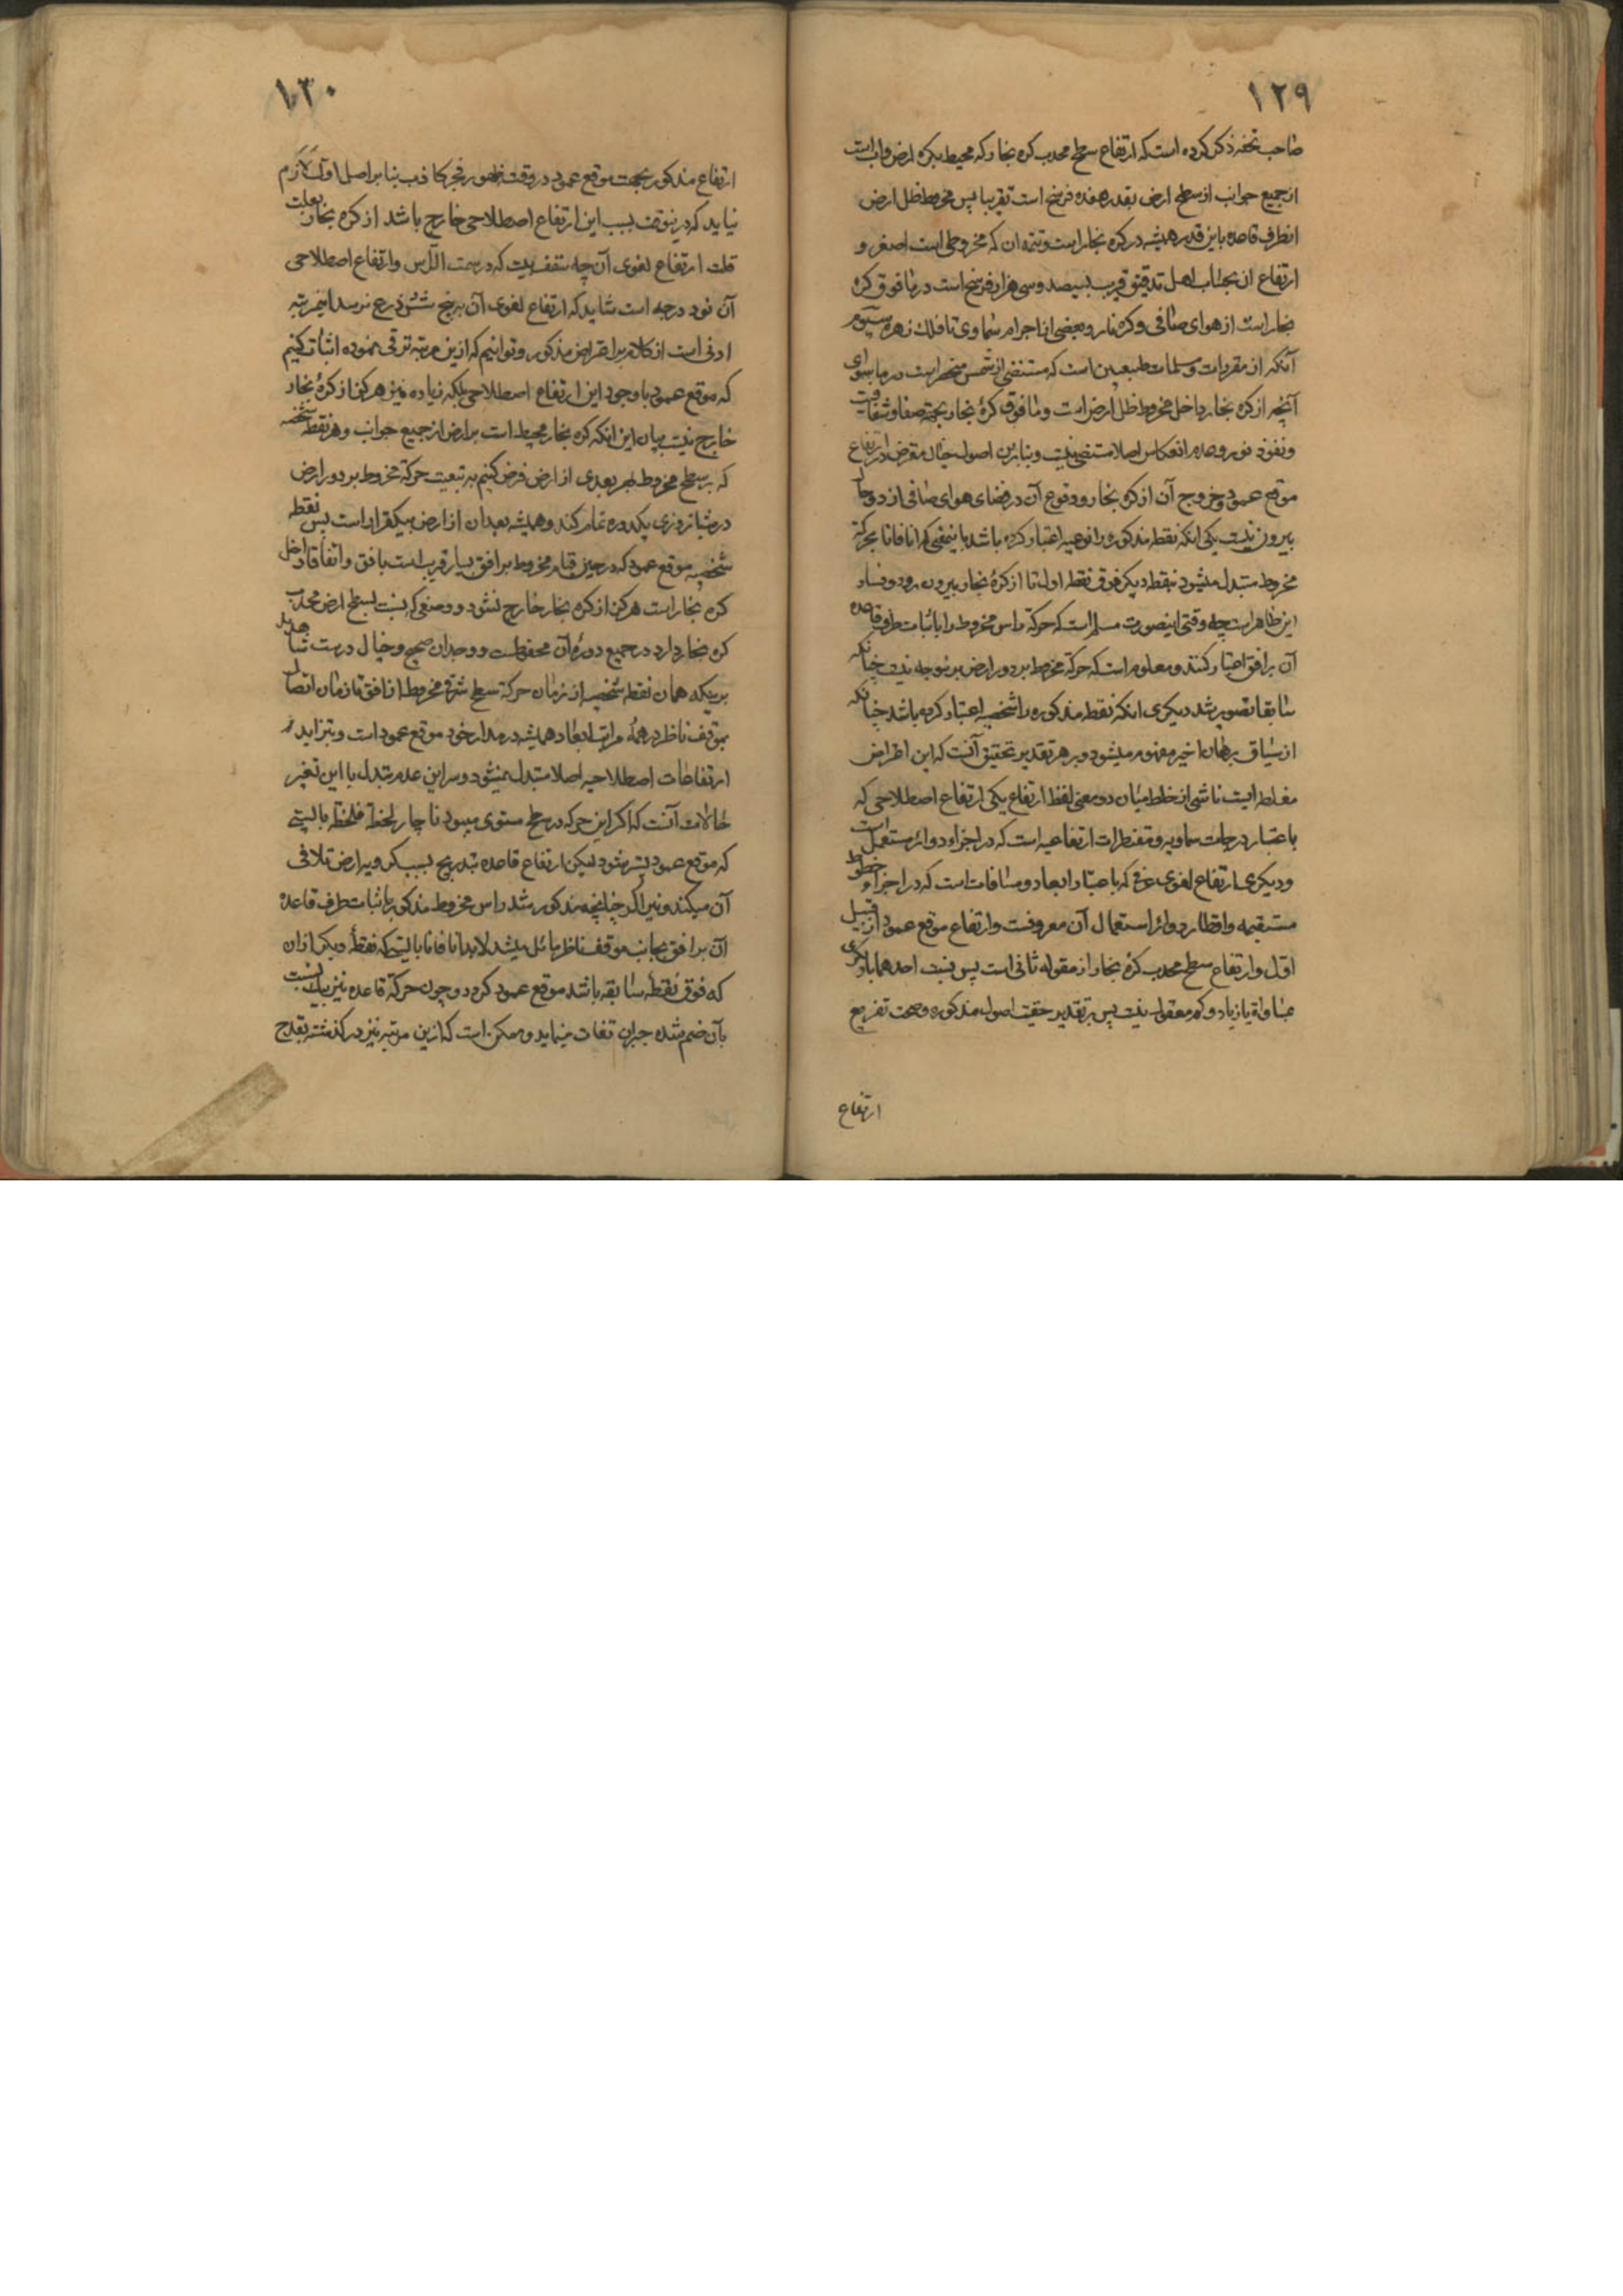 ١٢٩
صاحب تحفه ذکر کرده است که ارتفاع سطح محدب کره بخار که محیط بکره ارض و اب است
از جمیع جوانب از سطح ارض بقدر هفده فرسخ است تقریبا پس مخروط ظل ارض
از طرف قاعده باین قدر همیشه در کره بخار است و تتمه ان که مخروطی است اصغر و
ارتفاع ان بحساب اهل تدقیق قریب بسیصد و سی هزار فرسخ است در مافوق کره
بخار است از هوای صافی و کره نار و بعضی از اجرام سماوی تا فلک زهره سیوم
آنکه از مقررات و مسلمات طبیعیین است که مستضئ از شمس منحصر است در ماسوای
آنچه از کره بخار داخل مخروط ظل ارض است و مافوق کرۀ بخار بجهة صفا و شفافیت
و نفوذ نور و عدم انعکاس اصلا مستضئ نیست و بنابرین اصول خیال معترض در ارتفاع
موقع عمود و خروج آن از کره بخار و وقوع آن در فضای هوای صافی از دو حال
بیرون نیست یکی انکه نقطه مذکوره را نوعیه اعتبار کرده باشد باینمعنی که انا فانا بحرکة
مخروط متبدل میشود بنقطه دیگر فوق نقطه اول تا از کرۀ بخار بیرون رود و فساد
این ظاهر است چه وقتی اینصورت مسلم است که حرکة راس مخروط را با ثبات طرف قاعده
آن بر افق اعتبار کنند و معلوم است که حرکة مخروط بر دور ارض برینوجه نیست چنانکه
سابقا تصویر شد دیگری انکه نقطه مذکوره را شخصیه اعتبار کرده باشد چنانکه
از سیاق برهان اخیر مفهوم میشود و بر هر تقدیر تحقیق آنست که این اعتراض
مغلطه ایست ناشی از خلط میان دو معنی لفظ ارتفاع یکی ارتفاع اصطلاحی که
باعتبار درجات سماویه و مقنطرات ارتفاعیه است که در اجزاء دوائر مستعمل است
و دیگری ارتفاع لغوی عرفی که باعتبار ابعاد و مسافات است که در اجزاء خطوط
مستقیمه و اقطار دوائر استعمال آن معروفست و ارتفاع موقع عمود از قبیل
اول و ارتفاع سطح محدب کرۀ بخار از مقوله ثانی است پس نسبت احدهما با دیگری
بمساواة یا زیاد و کم معقول نیست پس بر تقدیر حقیت اصول مذکوره و صحت تفریع
ارتفاع
١٣٠
ارتفاع مذکور بجهت موقع عمود در وقت ظهور فجر کاذب بنا بر اصل اول لازم
نیاید که درینوقت بسبب این ارتفاع اصطلاحی خارج باشد از کره بخار بعلت
قلت ارتفاع لغوی آن چه سقف بیت که در سمت الرأس و ارتفاع اصطلاحی
آن نود درجه است شاید که ارتفاع لغوی آن به پنج شش ذرع نرسد اینمرتبه
ادنی است از کلام بر اعتراض مذکور و توانیم که ازین مرتبه ترقی نموده اثبات کنیم
که موقع عمود با وجود این ارتفاع اصطلاحی بلکه زیاده نیز هرگز از کرۀ بخار
خارج نیست بیان این انکه کره بخار محیط است بر ارض از جمیع جوانب و هر نقطه شخصیه
که بر سطح مخروط بهر بعدی از ارض فرض کنیم به تبعیت حرکة مخروط بر دور ارض
در شبانروزی یکدوره تمام کند و همیشه بعد ان از ارض بیکقرار است پس نقطه
شخصیه موقع عمود که در حین قیام مخروط بر افق بسیار قریب است بافق و اتفاقا داخل
کره بخار است هرگز از کره بخار خارج نشود و وضعی که نسبت بسطح ارض و محدب
کره بخار دارد در جمیع دورۀ آن محفوظست و وجدان صحیح و خیال درست شاهد
بر یکه همان نقطه شخصیه از زمان حرکة سطح شرقی مخروط از افق تا زمان اتصال
بموقف ناظر در همۀ مراتب ابعاد همیشه در مدار خود موقع عمود است و بتزاید
ارتفاعات اصطلاحیه اصلا متبدل نمیشود و سر این عدم تبدل با این تغیر
حالات آنست که اگر این حرکه در سطح مستوی میبود ناچار لحظة فلحظة بایستی
که موقع عمود بیشتر شود لیکن ارتفاع قاعده بتدریج بسبب کرویه ارض تلافی
آن میکند و نیز اگر چنانچه مذکور شد راس مخروط مذکور با ثبات طرف قاعده
آن بر افق بجانب موقف ناظر مائل میشد لابد انا فانا بایستی که نقطۀ دیگر از ان
که فوق نقطه سابقه باشد موقع عمود گردد و چون حرکة قاعده نیز بیک نسبت
بآن ضم شده جبران تفات مینماید و ممکن است که ازین مرتبه نیز در گذشته بقدح